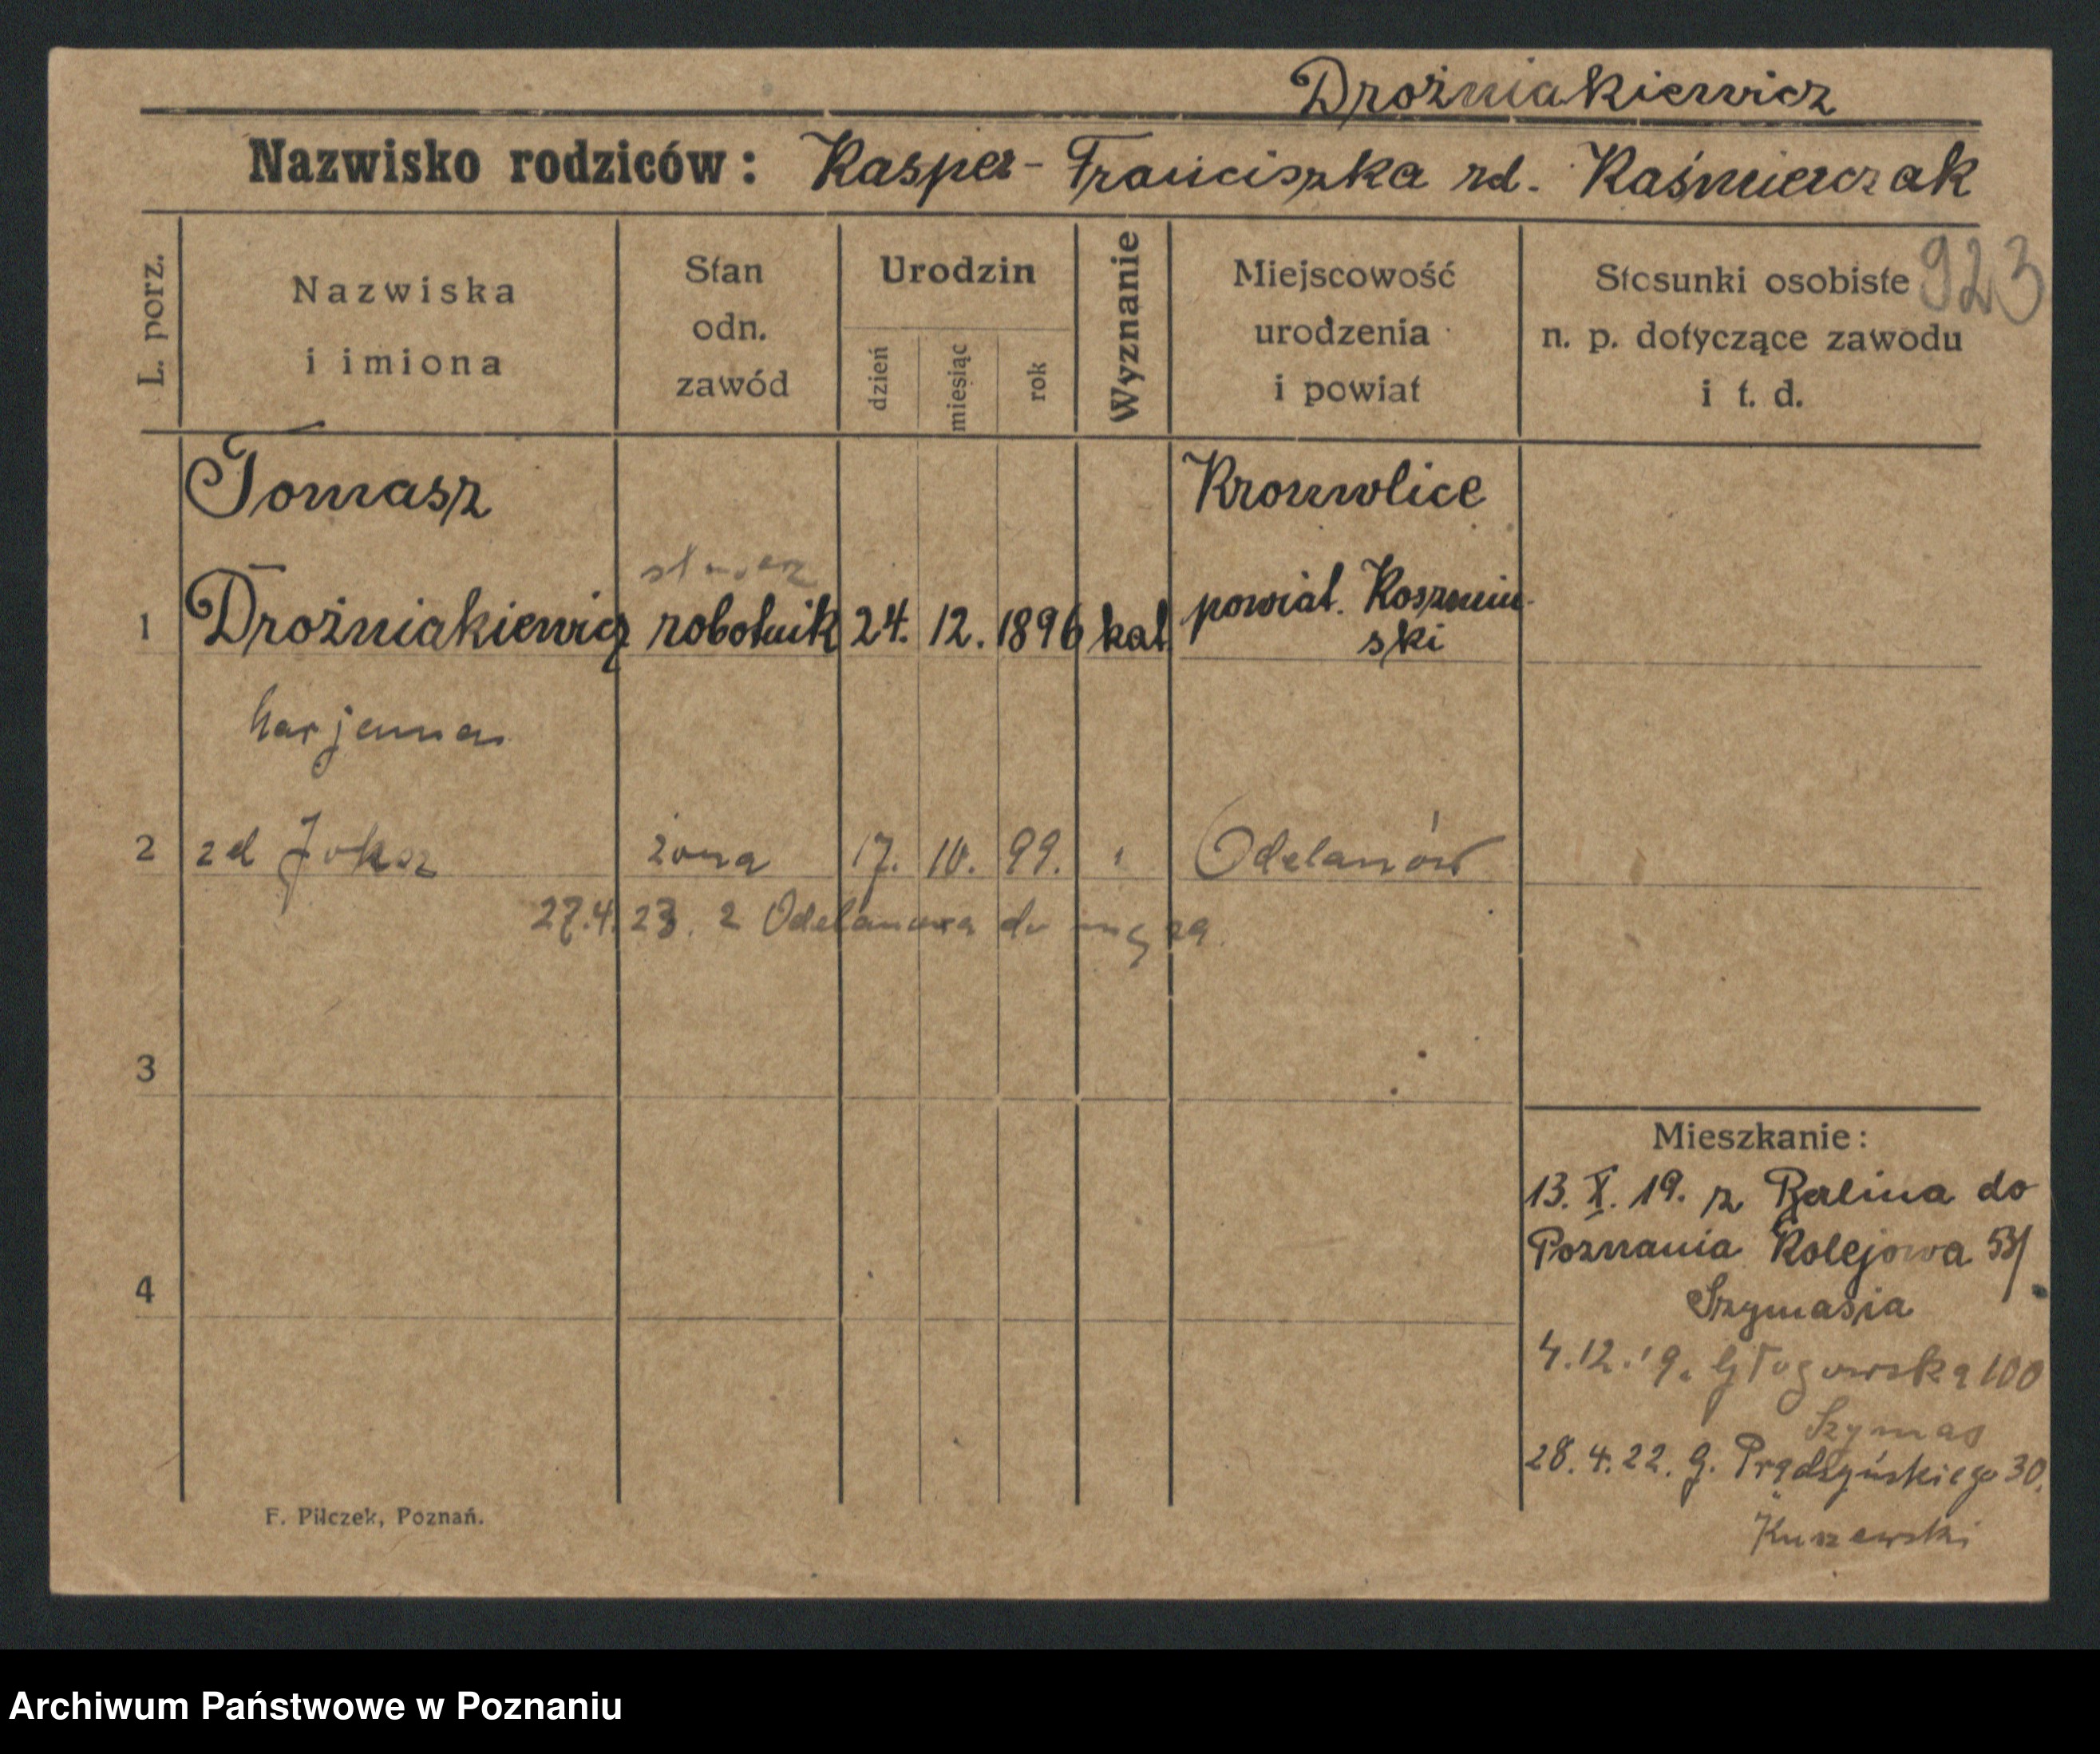 Drożniakiewicz
Nazwisko rodziców: Kasper - Franciszka rd. Kaśmierczak
923
L. porz.
Nazwiska
i imiona
Stan
odn.
zawód
Urodzin
dzień
miesiąc
rok
Wyznanie
Miejscowość
urodzenia
i powiat
Stosunki osobiste
n. p. dotyczące zawodu
i t. d.
Tomasz
Drożniakiewicz
1
robotnik
24. 12. 1896
kat
powiat. Koszmin-
ski
2
zd
żona
17. 10. 99.
Odelanów
27.4.23. z Odelanowa do męża
3
4
Mieszkanie:
13. X. 19. z Berlina do
Poznania Kolejowa
Szymasia
4.12.19. Głogowska 100
Szymas
28.4.22. g. Prądzyńskiego 30.
F. Pilczek, Poznań.
Archiwum Państwowe w Poznaniu